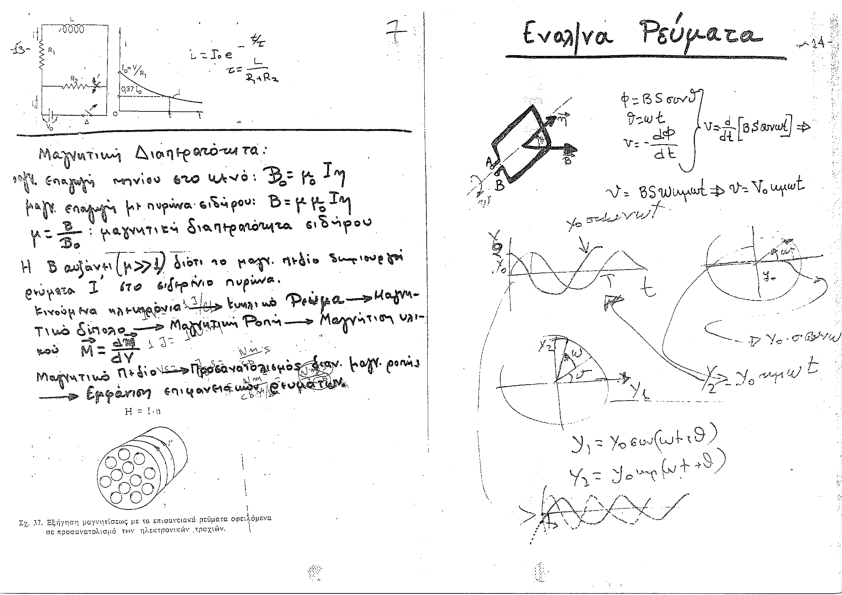 -13-
7
L
R₁
R₂
V₀
Δ
i
I₀=V/R₁
0,37 I₀
0
t
i = I₀ e^(-t/τ)
τ = L/(R₁+R₂)
Μαγνητική Διαπερατότητα:
μαγν. επαγωγή πηνίου στο κενό: B₀ = μ₀ I η
μαγν. επαγωγή με πυρήνα σιδήρου: B = μ μ₀ I η
μ = B/B₀ : μαγνητική διαπερατότητα σιδήρου
Η B αυξάνει (μ>>1) διότι το μαγν. πεδίο δημιουργεί
ρεύματα I' στο σιδερένιο πυρήνα.
Κινούμενα ηλεκτρόνια → κυκλικό Ρεύμα → Μαγνη-
τικό δίπολο → Μαγνητική Ροπή → Μαγνήτιση υλι-
κού M = dM/dV
Μαγνητικό Πεδίο → Προσανατολισμός διαν. μαγν. ροπής
→ Εμφάνιση επιφανειακών ρευμάτων.
H = I·n
Σχ. 37. Εξήγηση μαγνητίσεως με τα επιφανειακά ρεύματα οφειλόμενα
σε προσανατολισμό των ηλεκτρονικών τροχιών.
Εναλ/να Ρεύματα
-14-
A
B
η
B
φ = BSσυνϑ
ϑ = ωt
v = -dΦ/dt
v = d/dt [BSσυνωt] ⇒
v = BSωημωt ⇒ v = V₀ημωt
y₀συνωt
y₀
T
t
ωt
y₀
y₀·συνω
y₂ = y₀ημωt
y₂
ω
ϑ
y₁
y₁ = y₀συν(ωt+ϑ)
y₂ = y₀ημ(ωt+ϑ)